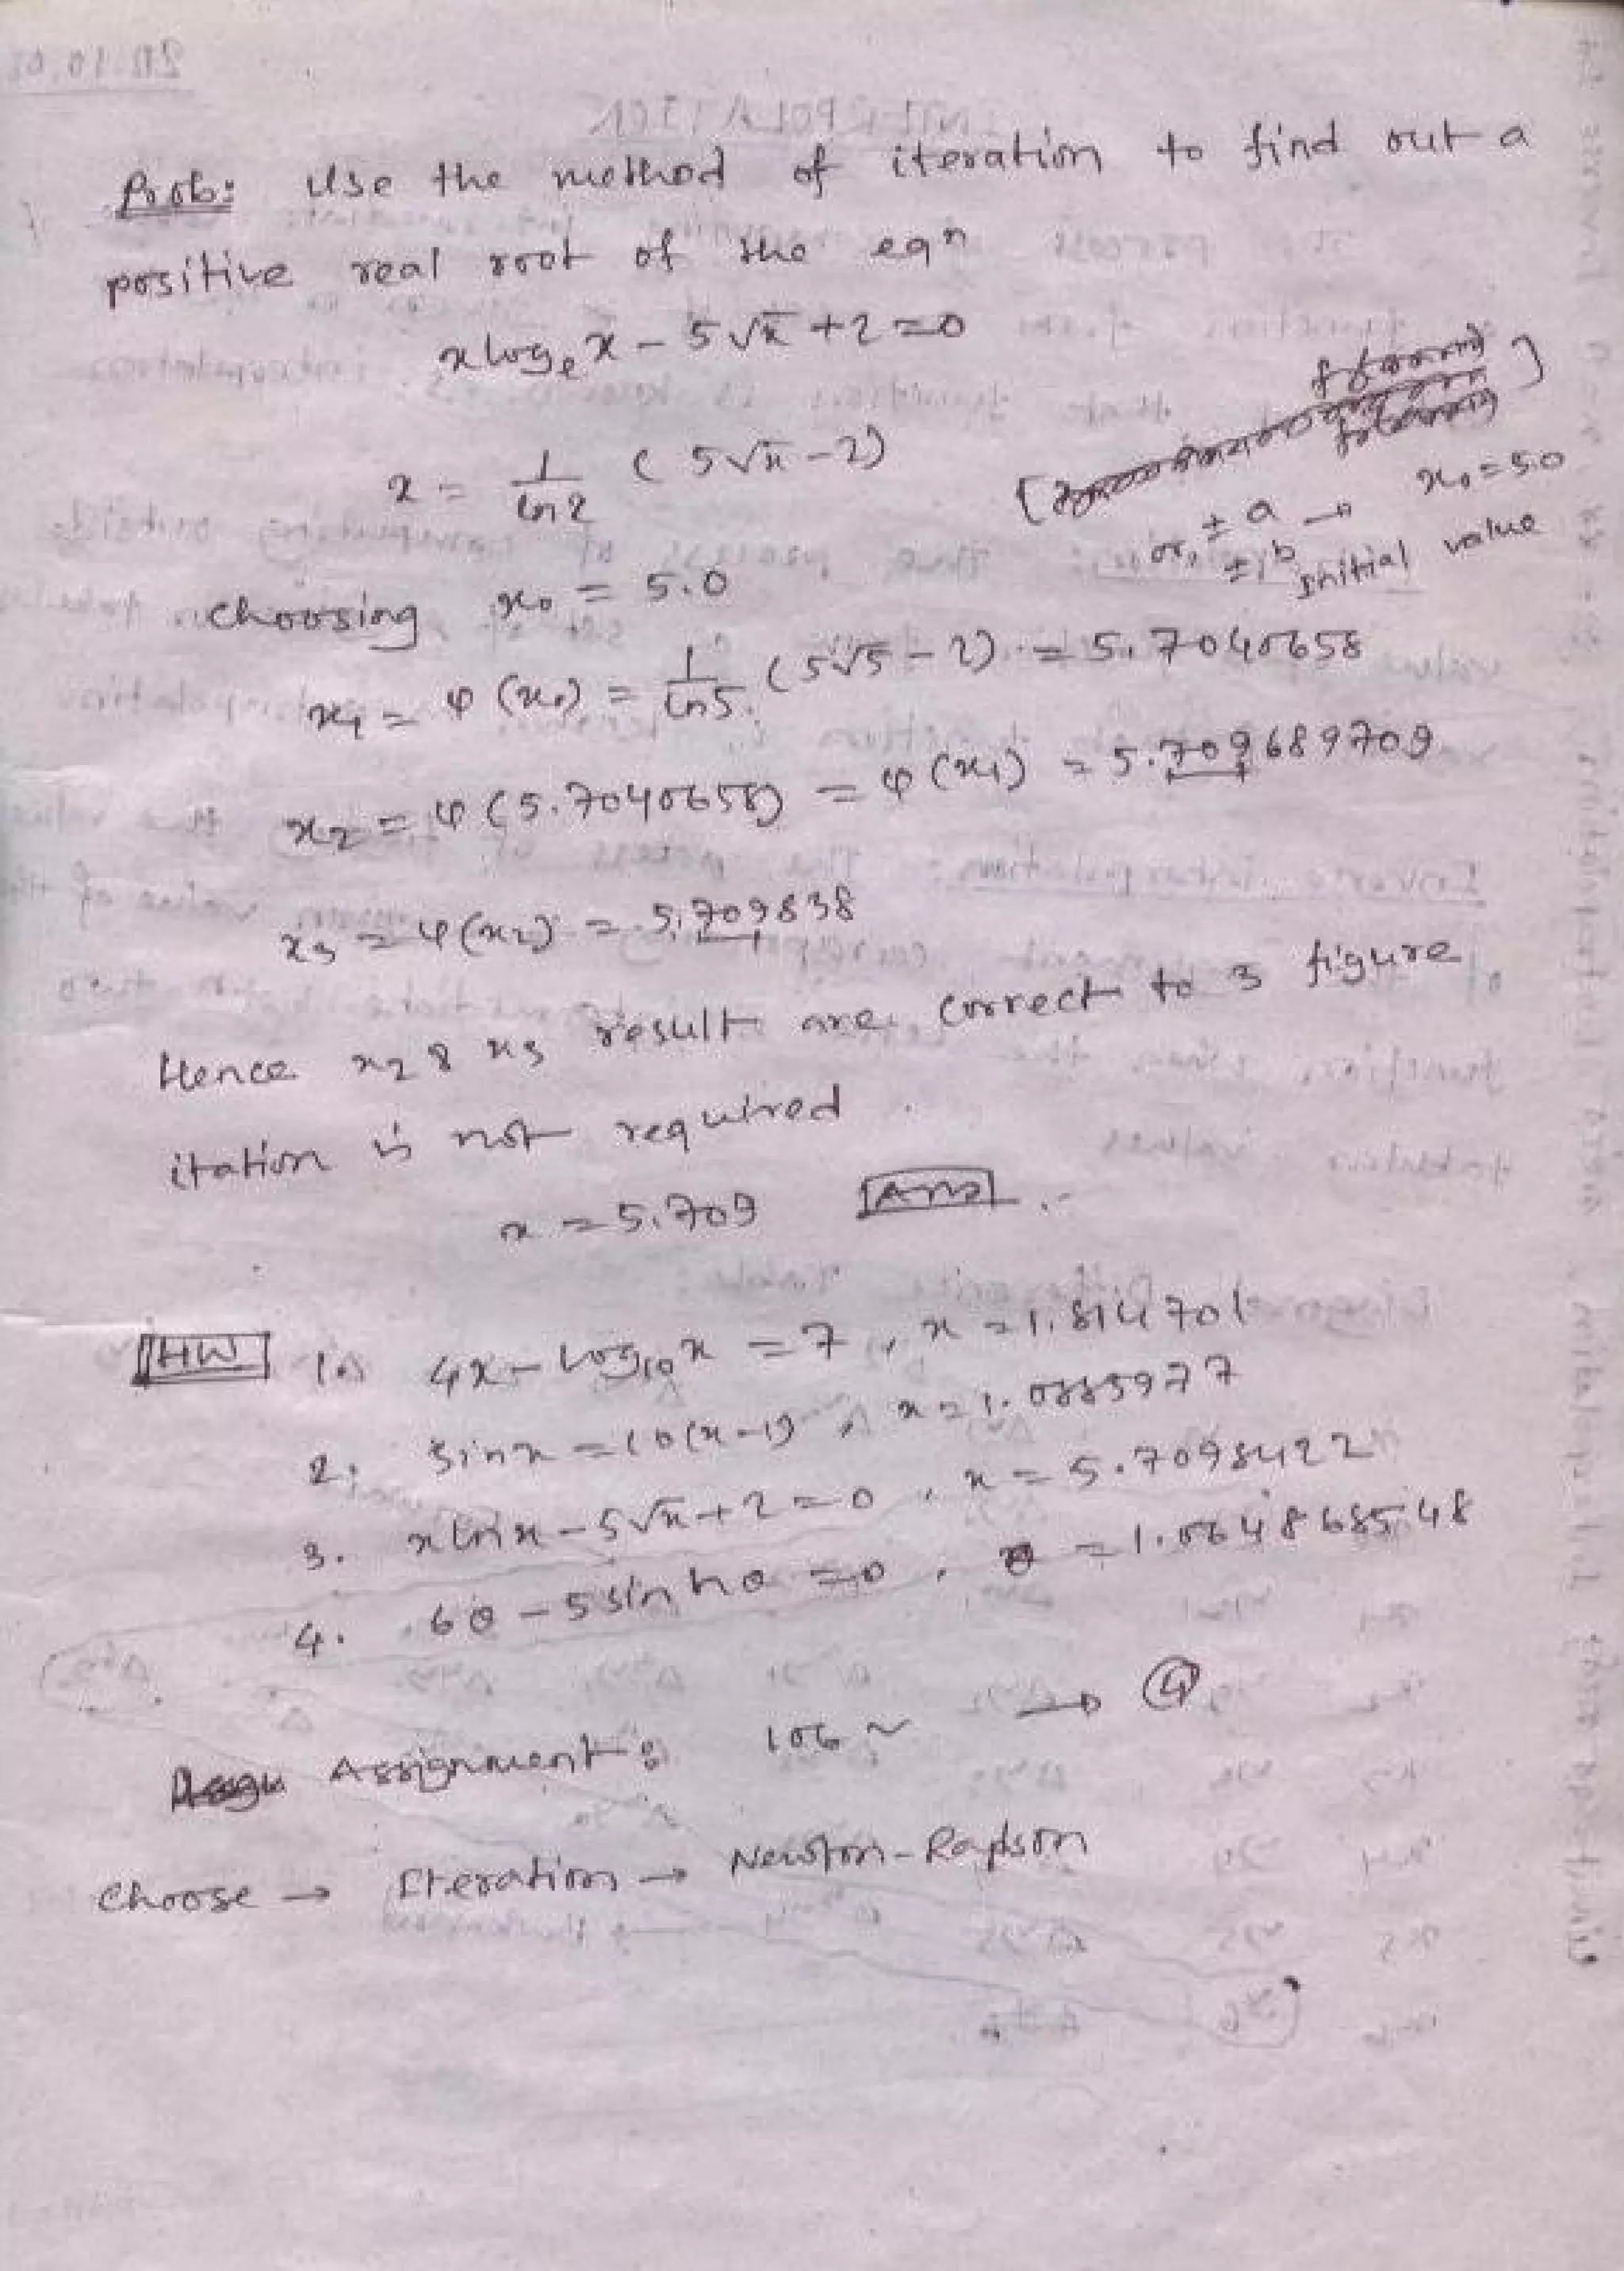 Prob: Use the method of iteration to find out a
positive real root of the eqⁿ
x logₑ x - 5√x + 2 = 0
x = 1/ln 2 ( 5√x - 2)
or, ± a → x₀ = 5.0
± b initial value
choosing x₀ = 5.0
x₁ = φ (x₀) = 1/ln 5. (5√5 - 2) = 5.7040658
x₂ = φ (5.7040658) = φ (x₁) = 5.709689709
x₃ = φ(x₂) = 5.709838
Hence x₂ & x₃ result are correct to 3 figure.
itation is not required.
x = 5.709 Ans.
HW 1. 4x - log₁₀ x = 7, x = 1.814701
2. sin x = 10(x-1), x = 1.0885977
3. x ln x - 5√x + 2 = 0, x = 5.7098422
4. 6θ - 5 sin hθ = 0, θ = 1.0648685548
Assignment: 106 ~ → 4
choose → Iteration → Newton-Rapson